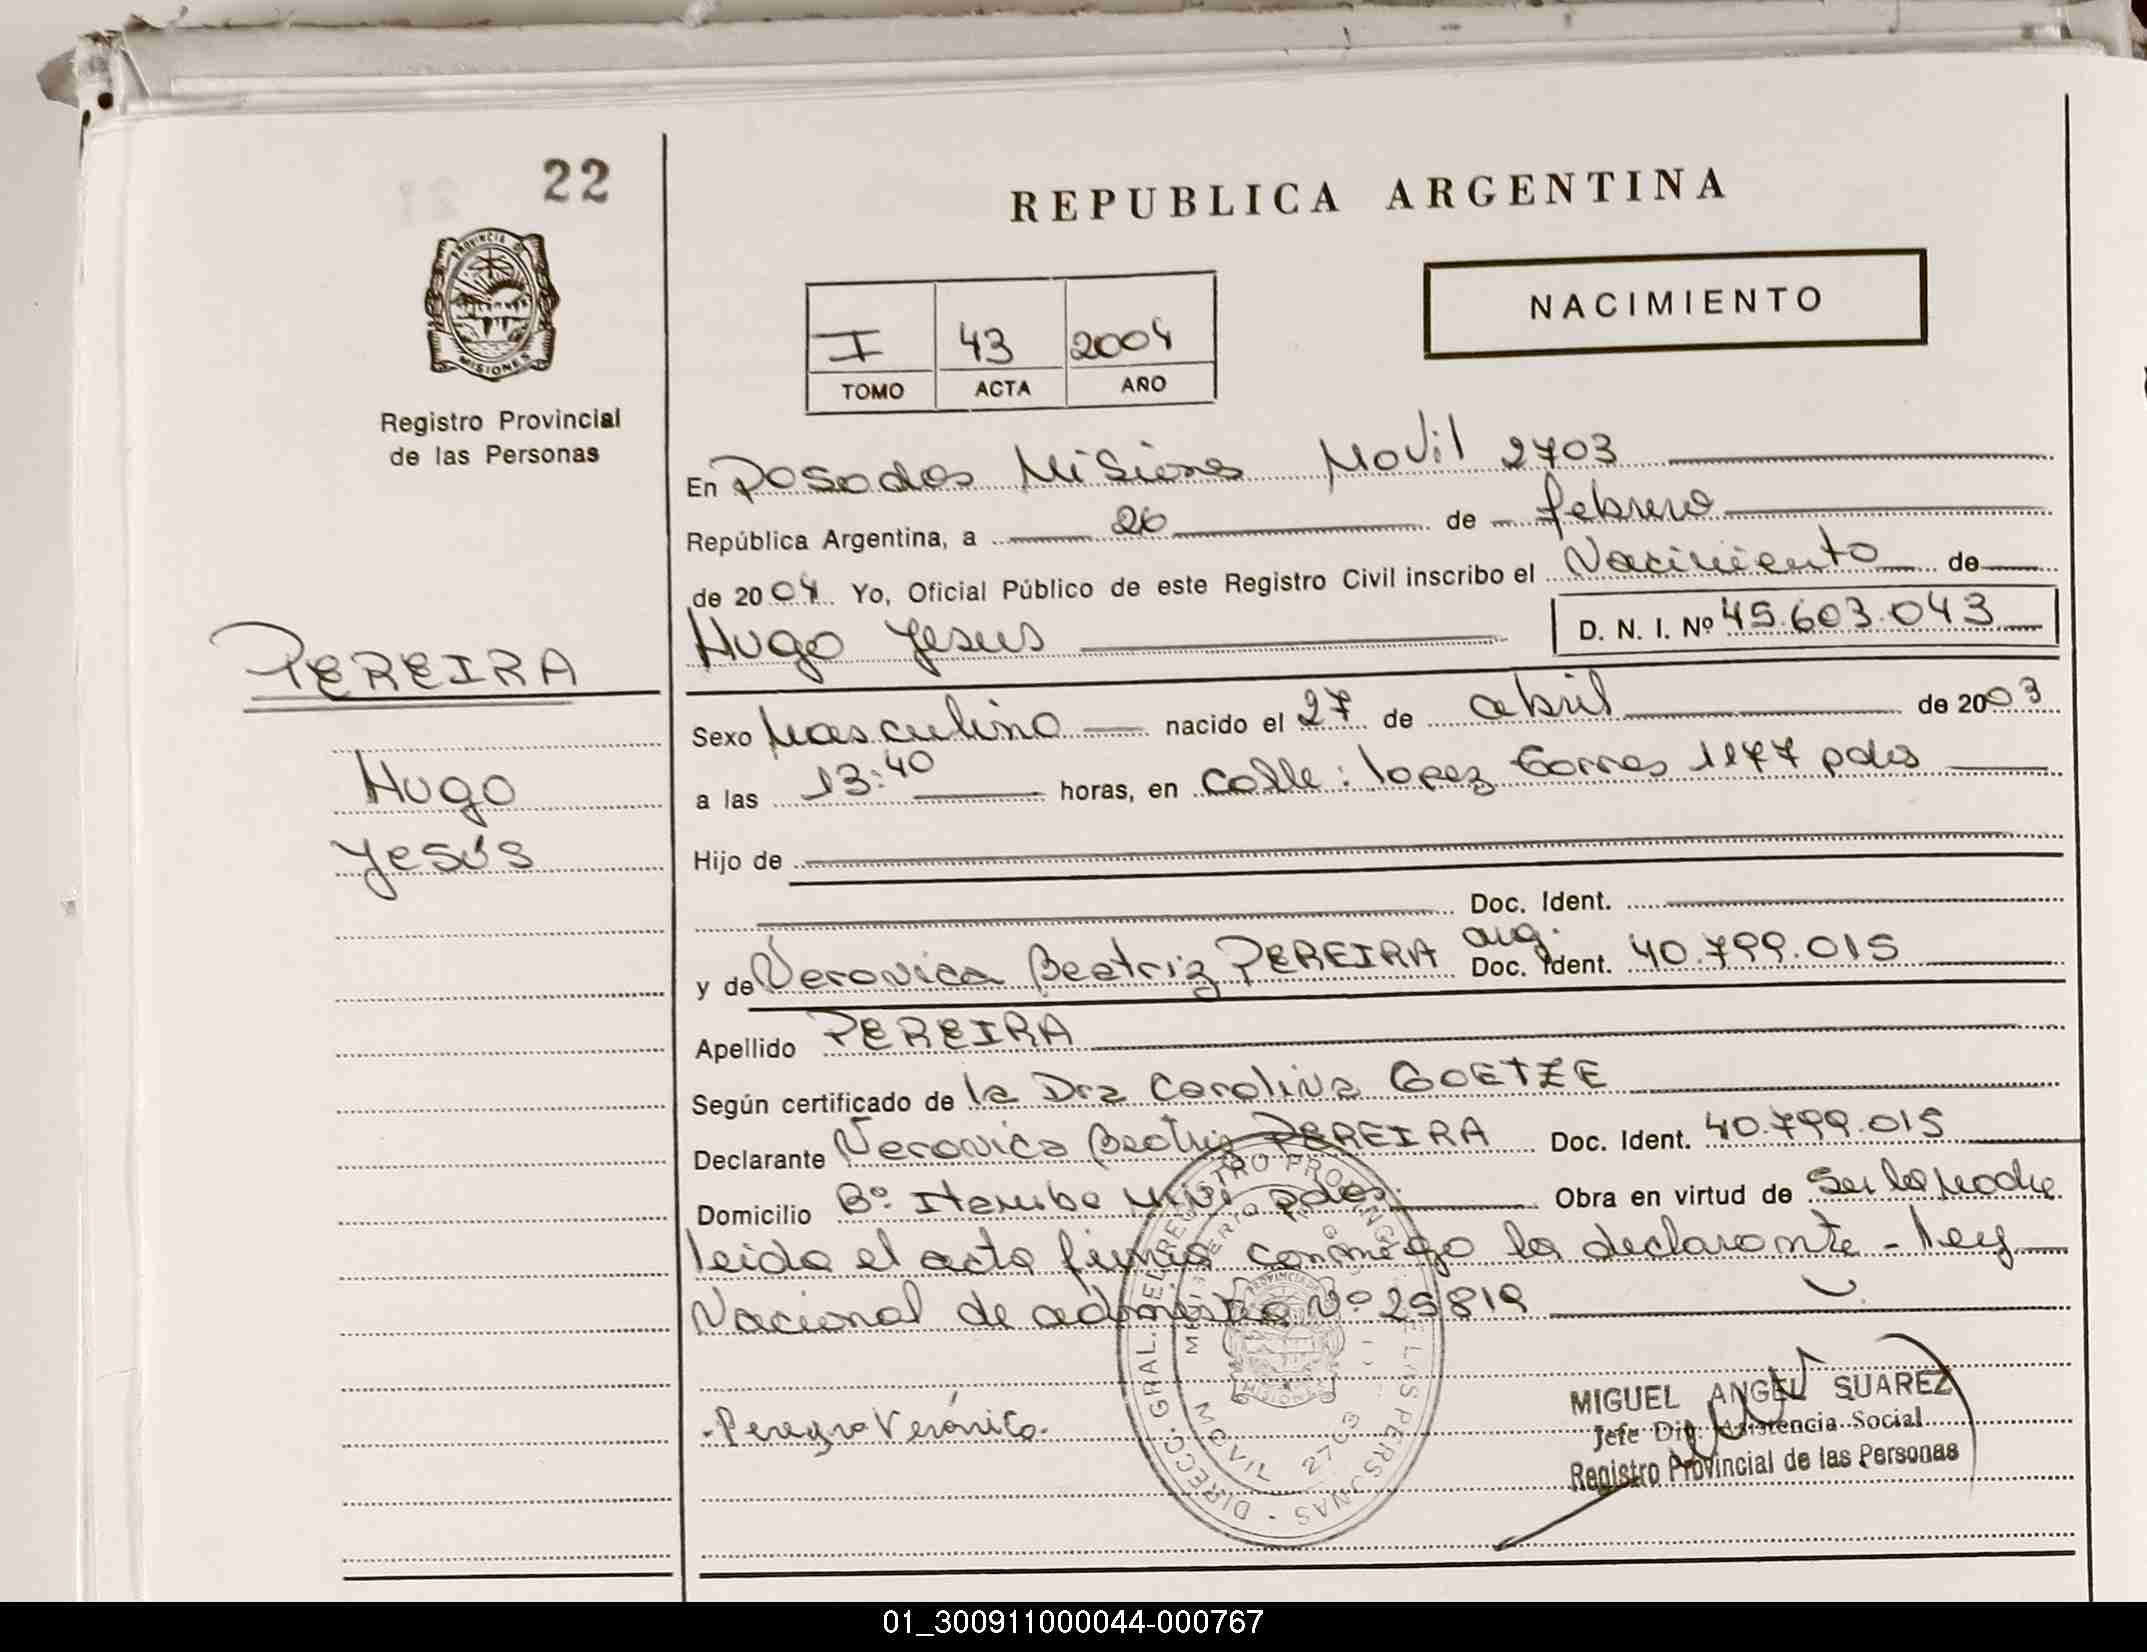 22
REPUBLICA ARGENTINA
NACIMIENTO
PROVINCIA DE
MISIONES
Registro Provincial
de las Personas
I 43 2004
TOMO ACTA AÑO
En Posadas Misiones Movil 2703
República Argentina, a 26 de febrero
de 2004 Yo, Oficial Público de este Registro Civil inscribo el Nacimiento de
Hugo Jesus D. N. I. Nº 45.603.043
PEREIRA
Hugo
Jesús
Sexo Masculino nacido el 27 de abril de 2003
a las 13:40 horas, en Calle: Lopez Torres 1177 pdas
Hijo de
Doc. Ident.
y de Veronica Beatriz PEREIRA arg. Doc. Ident. 40.799.015
Apellido PEREIRA
Según certificado de la Dra Carolina GOETZE
Declarante Veronica Beatriz PEREIRA Doc. Ident. 40.799.015
Domicilio Bº Itaembe Mini pdas. Obra en virtud de Ser la Madre
leida el acta firma conmigo la declarante - ley
Nacional de admistia Nº 25819
DIRECC. GRAL. DEL REGISTRO PROVINCIAL DE LAS PERSONAS
MOVIL 2703
PROVINCIA DE
MISIONES
Pereyra Verónica.
MIGUEL ANGEL SUAREZ
Jefe Dig. Asistencia Social
Registro Provincial de las Personas
01_300911000044-000767